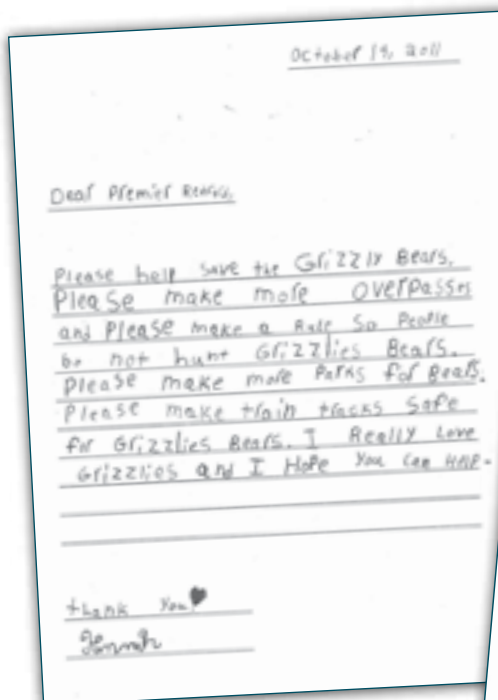 October 19, 2011
Dear Premier
Please help save the Grizzly Bears.
Please make more overpasses
and Please make a Rule So People
do not hunt Grizzlies Bears.
Please make more Parks for Bears.
Please make train tracks Safe
for Grizzlies Bears. I Really Love
Grizzlies and I Hope You Can HELP.
thank You
Hannah